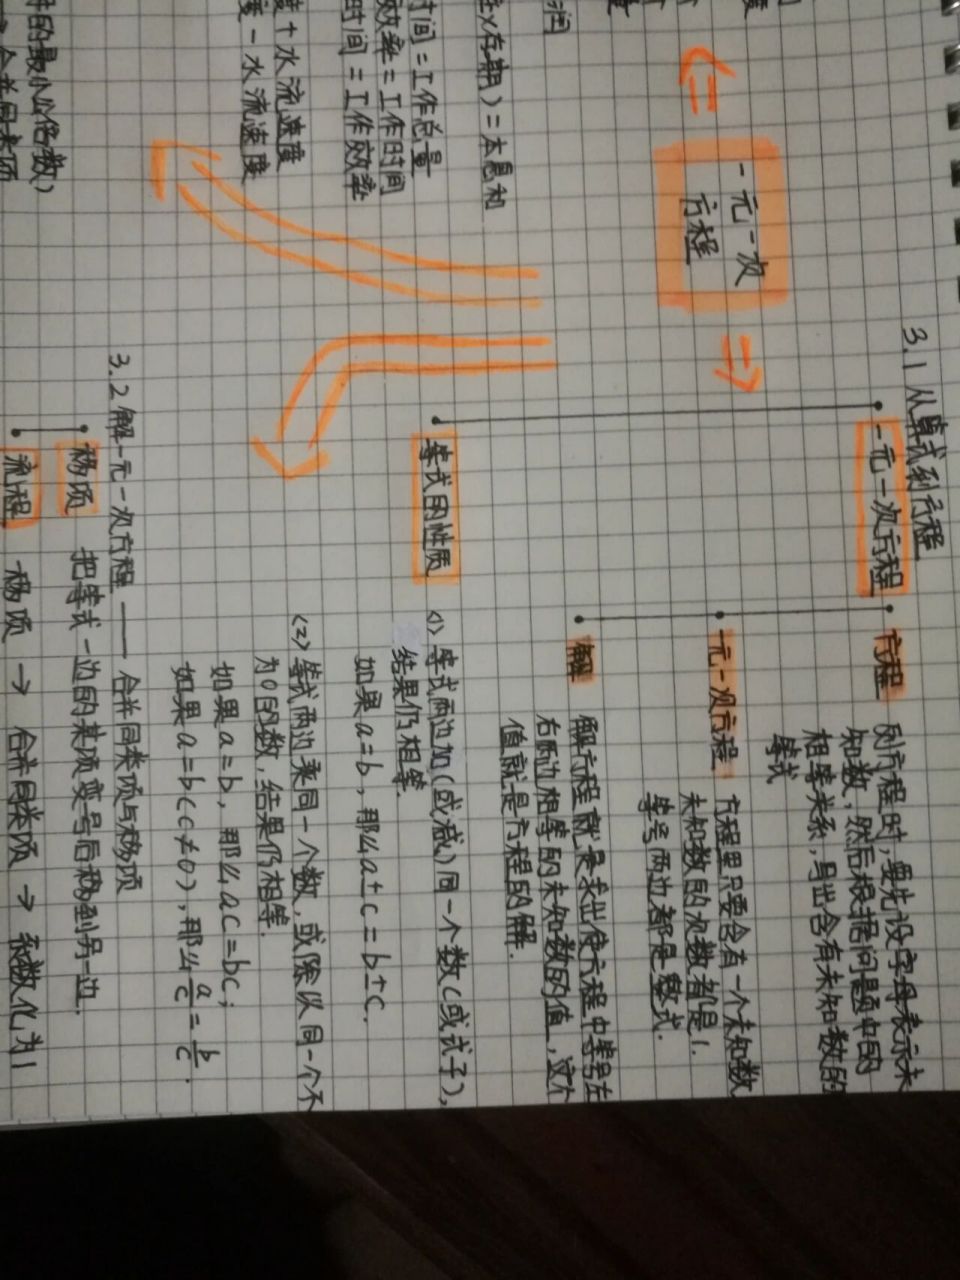 一元一次
方程
3.1 从算式到方程
一元一次方程
方程
列方程时,要先设字母表示未
知数,然后根据问题中的
相等关系,写出含有未知数的
等式
一元一次方程
方程里只要含有一个未知数
未知数的次数都是1.
等号两边都是整式.
解
解方程就是求出使方程中等号左
右两边相等的未知数的值,这个
值就是方程的解.
等式的性质
(1) 等式两边加(或减)同一个数(或式子),
结果仍相等.
如果a=b,那么a±c=b±c.
(2) 等式两边乘同一个数,或除以同一个不
为0的数,结果仍相等.
如果a=b,那么ac=bc;
如果a=b(c≠0),那么a/c=b/c.
3.2 解一元一次方程 —— 合并同类项与移项
移项 把等式一边的某项变号后移到另一边.
流程 移项 → 合并同类项 → 系数化为1
)=本息和
时间=工作总量
效率=工作时间
时间=工作效率
+水流速度
-水流速度
的最小公倍数)
合并同类项